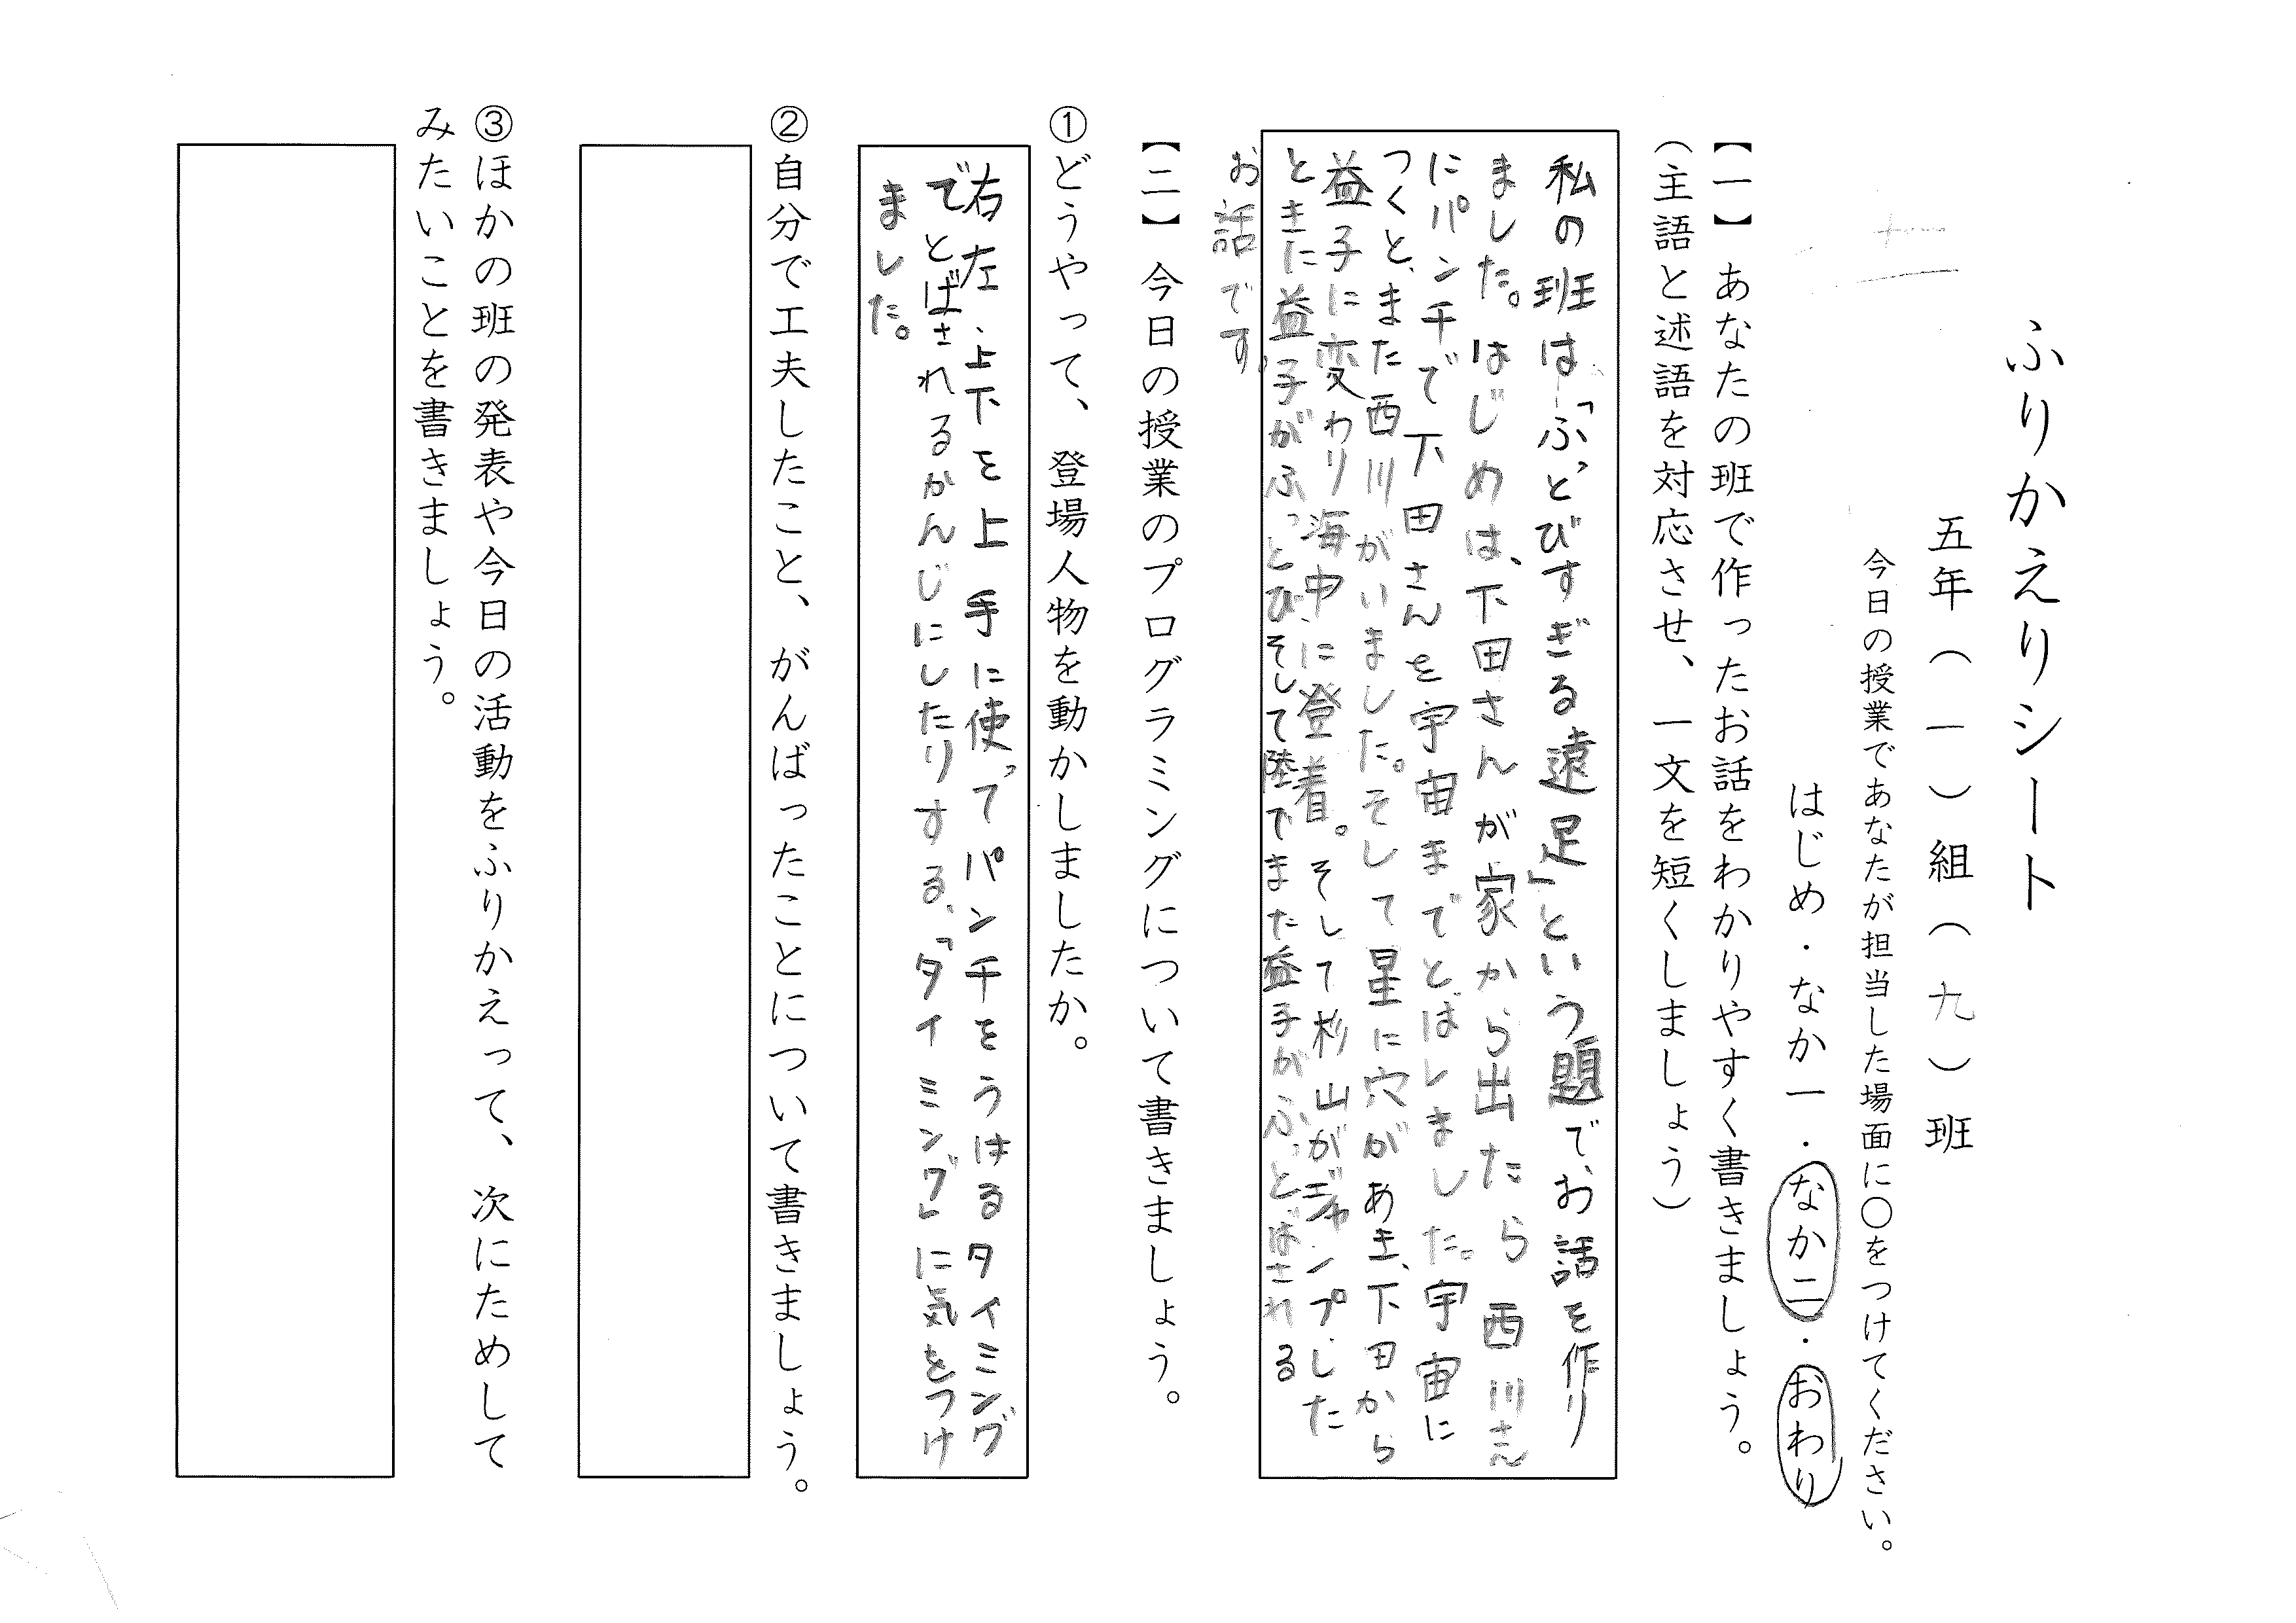 ふりかえりシート
五年（一）組（九）班
今日の授業であなたが担当した場面に〇をつけてください。
はじめ・なか一・なか二・おわり
【一】あなたの班で作ったお話をわかりやすく書きましょう。
（主語と述語を対応させ、一文を短くしましょう）
私の班は「ふっとびすぎる遠足」という題で、お話を作り
ました。はじめは、下田さんが家から出たら西川さん
にパンチで下田さんを宇宙までとばしました。宇宙に
つくと、また西川がいました。そして星に穴があき、下田から
益子に変わり海中に登着。そして杉山がジャンプした
ときに益子がふっとびそして陸でまた益子がふっとばされる
お話です。
【二】今日の授業のプログラミングについて書きましょう。
①どうやって、登場人物を動かしましたか。
右左、上下を上手に使ってパンチをうはるタイミング
でとばされるかんじにしたりする、「タイミング」に気をつけ
ました。
②自分で工夫したこと、がんばったことについて書きましょう。
③ほかの班の発表や今日の活動をふりかえって、次にためして
みたいことを書きましょう。